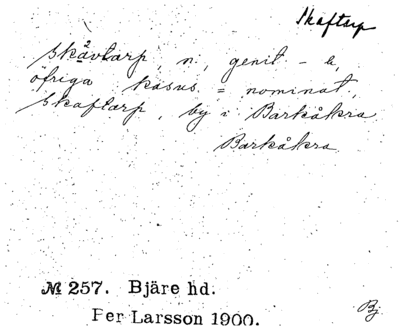 Skaftarp
skåvtarp, n, genit - s,
öfriga kasus = nominat,
Skaftarp, by i Barkåkra
Barkåkra
№ 257. Bjäre hd.
Per Larsson 1900.
Bj